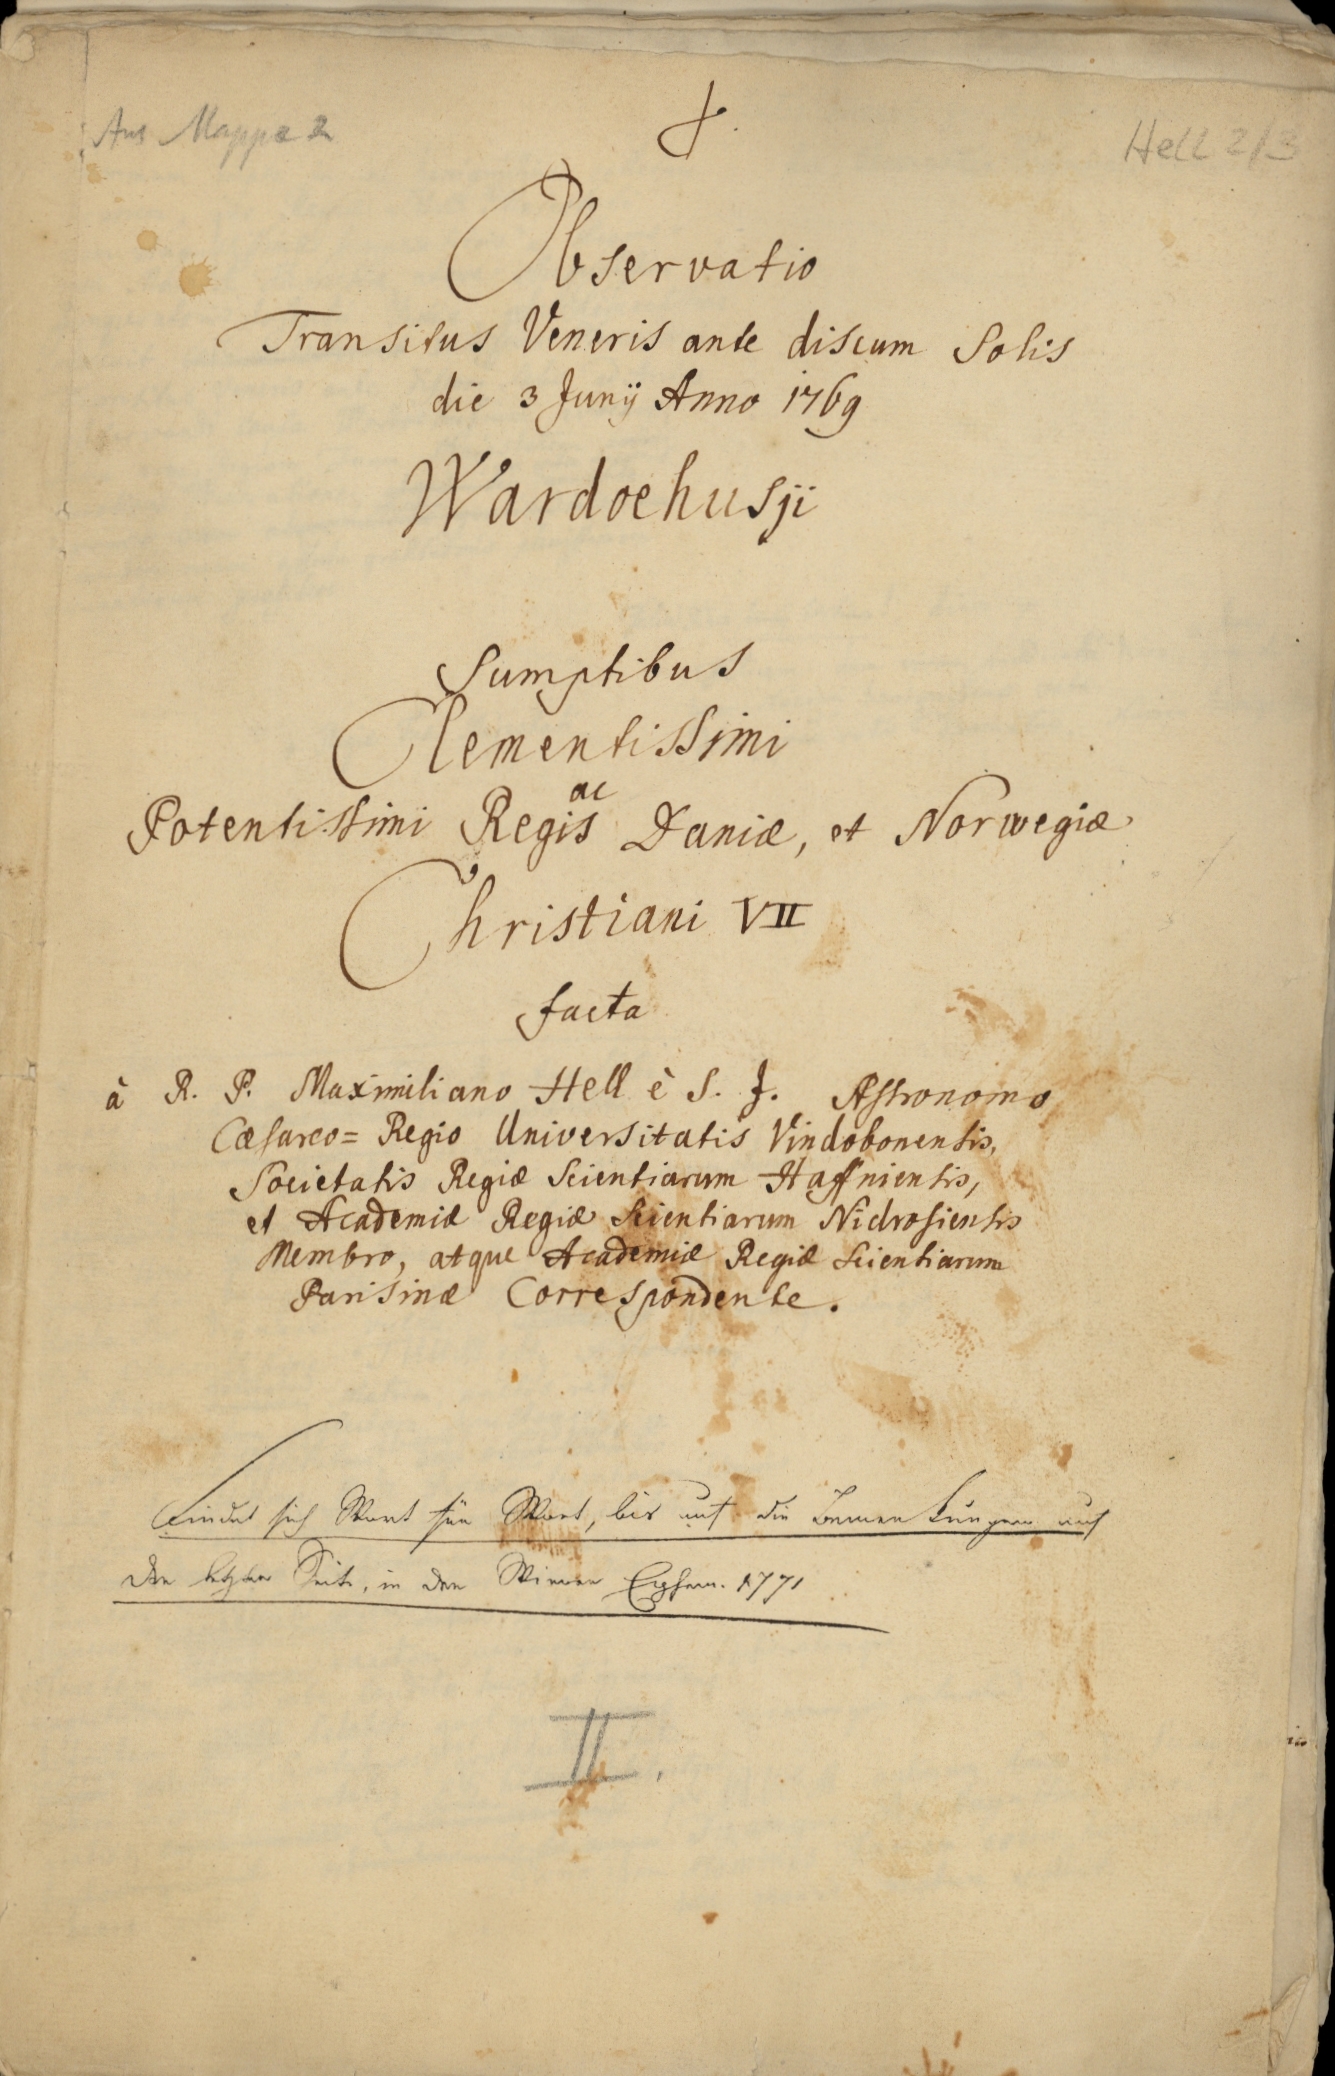 Aus Mappe 2
Hell 2/3
Observatio
Transitus Veneris ante discum Solis
die 3 Junij Anno 1769
Wardoehusji
Sumptibus
Clementissimi
ac
Potentissimi Regis Daniæ, et Norwegiæ
Christiani VII
facta
à R. P. Maximiliano Hell è S. J. Astronomo
Cæsareo= Regio Universitatis Vindobonensis,
Societatis Regiæ Scientiarum Haffniensis,
et Academiæ Regiæ Scientiarum Nidrosiensis
Membro, atque Academiæ Regiæ Scientiarum
Parisinæ Correspondente.
Findet sich Wort für Wort, bis auf die Bemerkungen auf
der letzten Seite, in den Wiener Ephem. 1771
II.